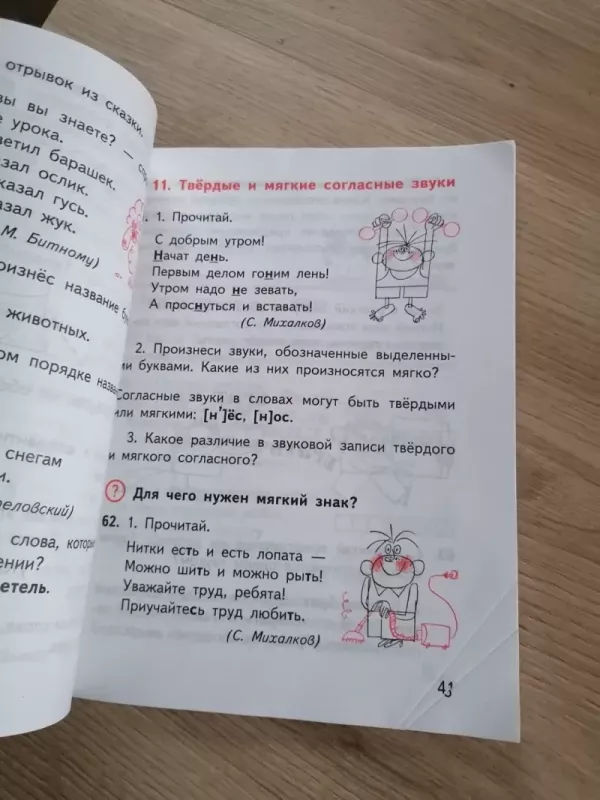 отрывок из сказки.
вы вы знаете? —
е урока.
ветил барашек.
зал ослик.
казал гусь.
азал жук.
М. Битному)
оизнёс название
животных.
ом порядке назва
снегам
и.
еловский)
слова, которы
ении?
етель.
11. Твёрдые и мягкие согласные звуки
1. Прочитай.
С добрым утром!
Начат день.
Первым делом гоним лень!
Утром надо не зевать,
А проснуться и вставать!
(С. Михалков)
2. Произнеси звуки, обозначенные выделенны-
ми буквами. Какие из них произносятся мягко?
Согласные звуки в словах могут быть твёрдыми
или мягкими: [н']ёс, [н]ос.
3. Какое различие в звуковой записи твёрдого
и мягкого согласного?
? Для чего нужен мягкий знак?
62. 1. Прочитай.
Нитки есть и есть лопата —
Можно шить и можно рыть!
Уважайте труд, ребята!
Приучайтесь труд любить.
(С. Михалков)